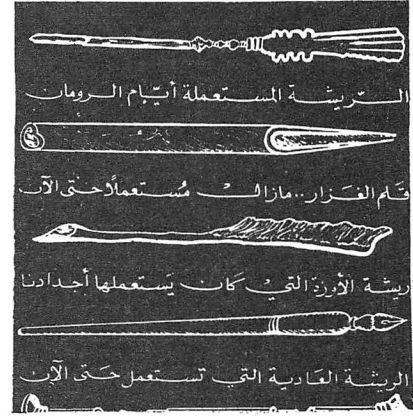 الـــرّيشــة المستعملة أيّــام الــرومان
قلم الغَــزار..مازالــــ مُستعملاً حَــتّى الآن
ريشة الأوزة التيــ كَانــت يَستعملها أجدادنا
الريشة العَـادية التي تستعمل حَــتى الآن